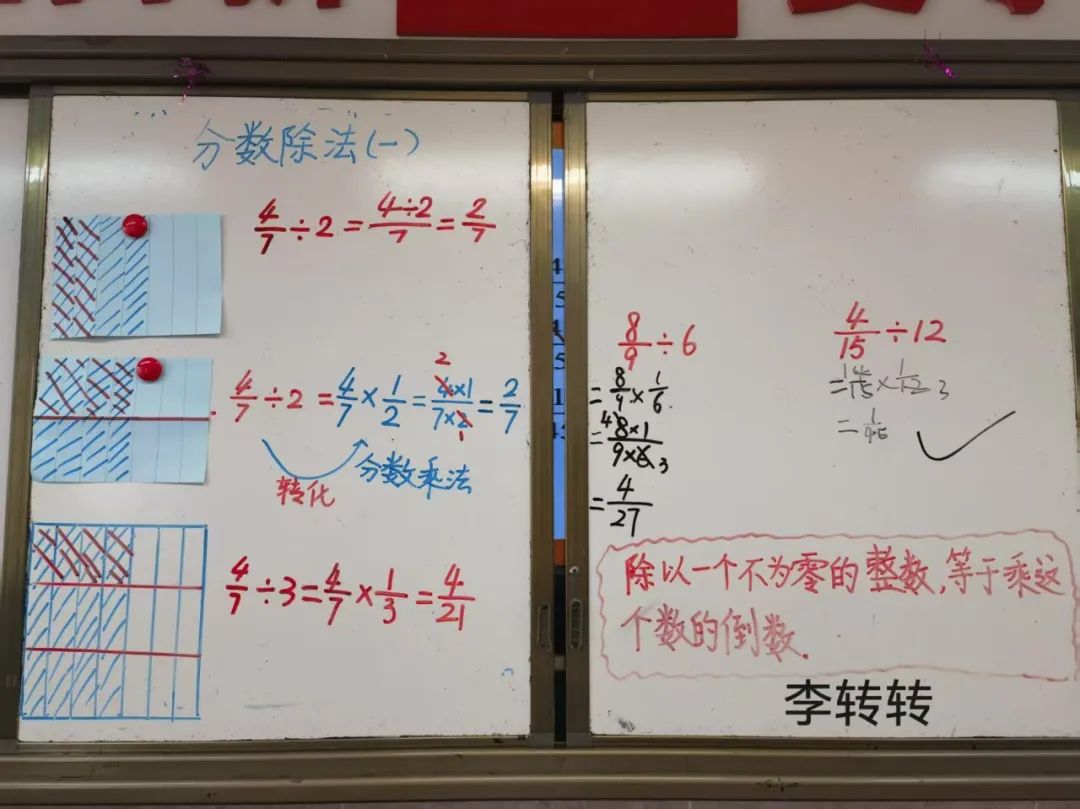 分数除法(一)
4/7÷2=4÷2/7=2/7
4/7÷2=4/7×1/2=4×1/7×2=2/7
2
1
转化
分数乘法
4/7÷3=4/7×1/3=4/21
8/9÷6
=8/9×1/6
=8×1/9×6
4
3
=4/27
4/15÷12
=4/15×1/12
1
3
=1/45
除以一个不为零的整数,等于乘这
个数的倒数.
李转转